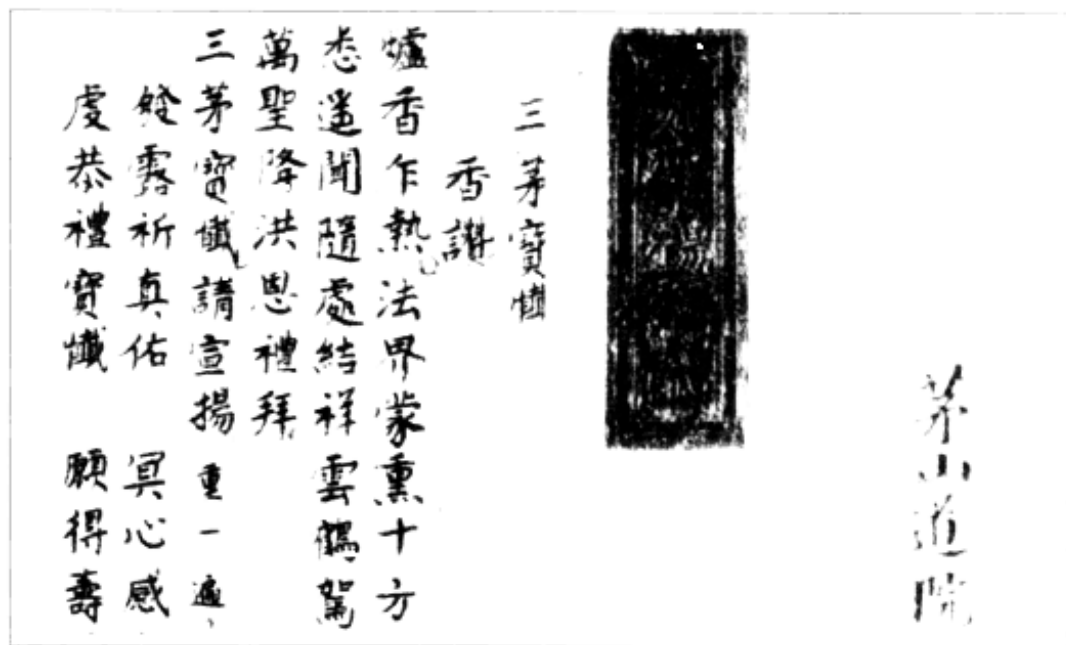 茅山道院
三茅寶懺
香讚
爐香乍熱法界蒙熏十方
悉遙聞隨處結祥雲鶴駕
萬聖降洪恩禮拜
三茅寶懺請宣揚重一遍
發露祈真佑　冥心感
虔恭禮寶懺　願得壽